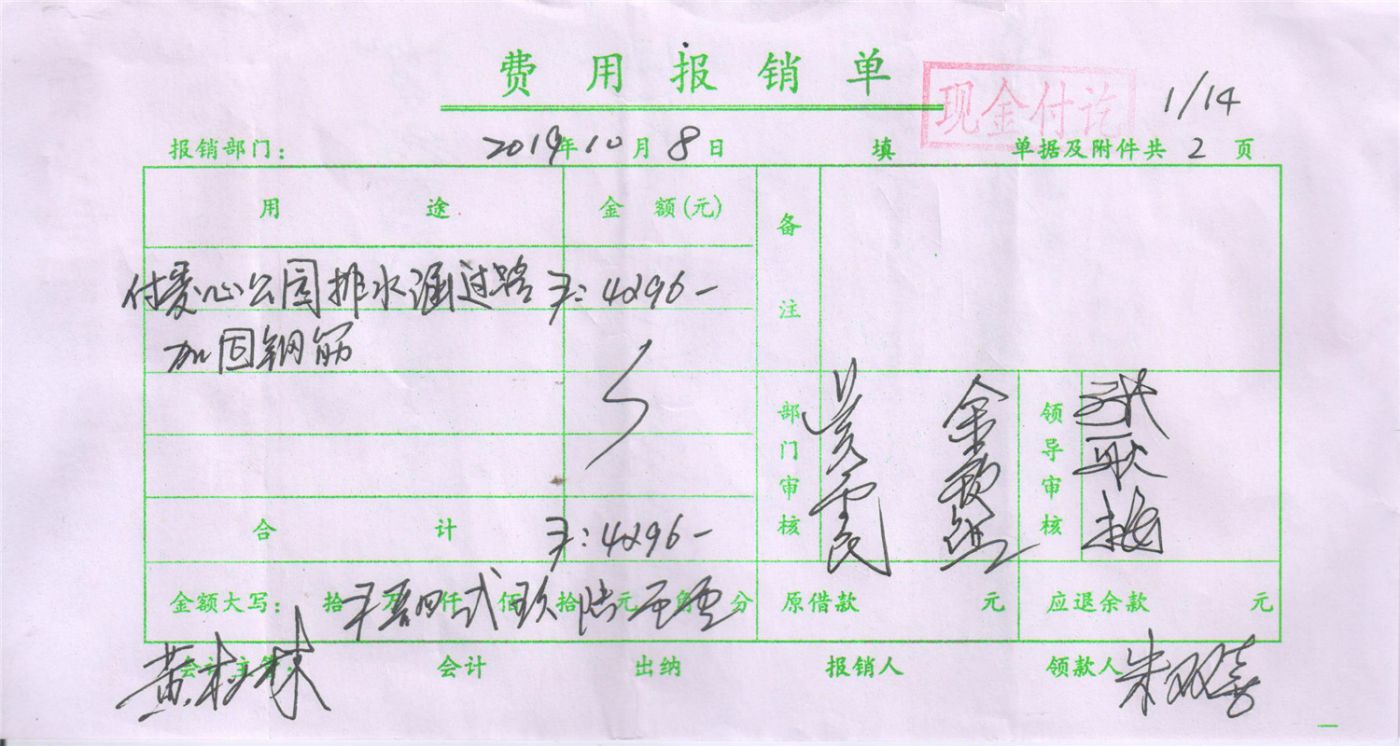 费用报销单
现金付讫
1/14
报销部门: 2019年10月8日 填 单据及附件共 2 页
用途 金额(元) 备注
付爱心公园排水涵过路 4296-
加固钢筋
部门审核 领导审核
合计 4296-
金额大写: 拾 万 仟 佰 拾 元 角 分 原借款 元 应退余款 元
会计主管: 会计 出纳 报销人 领款人 朱双喜